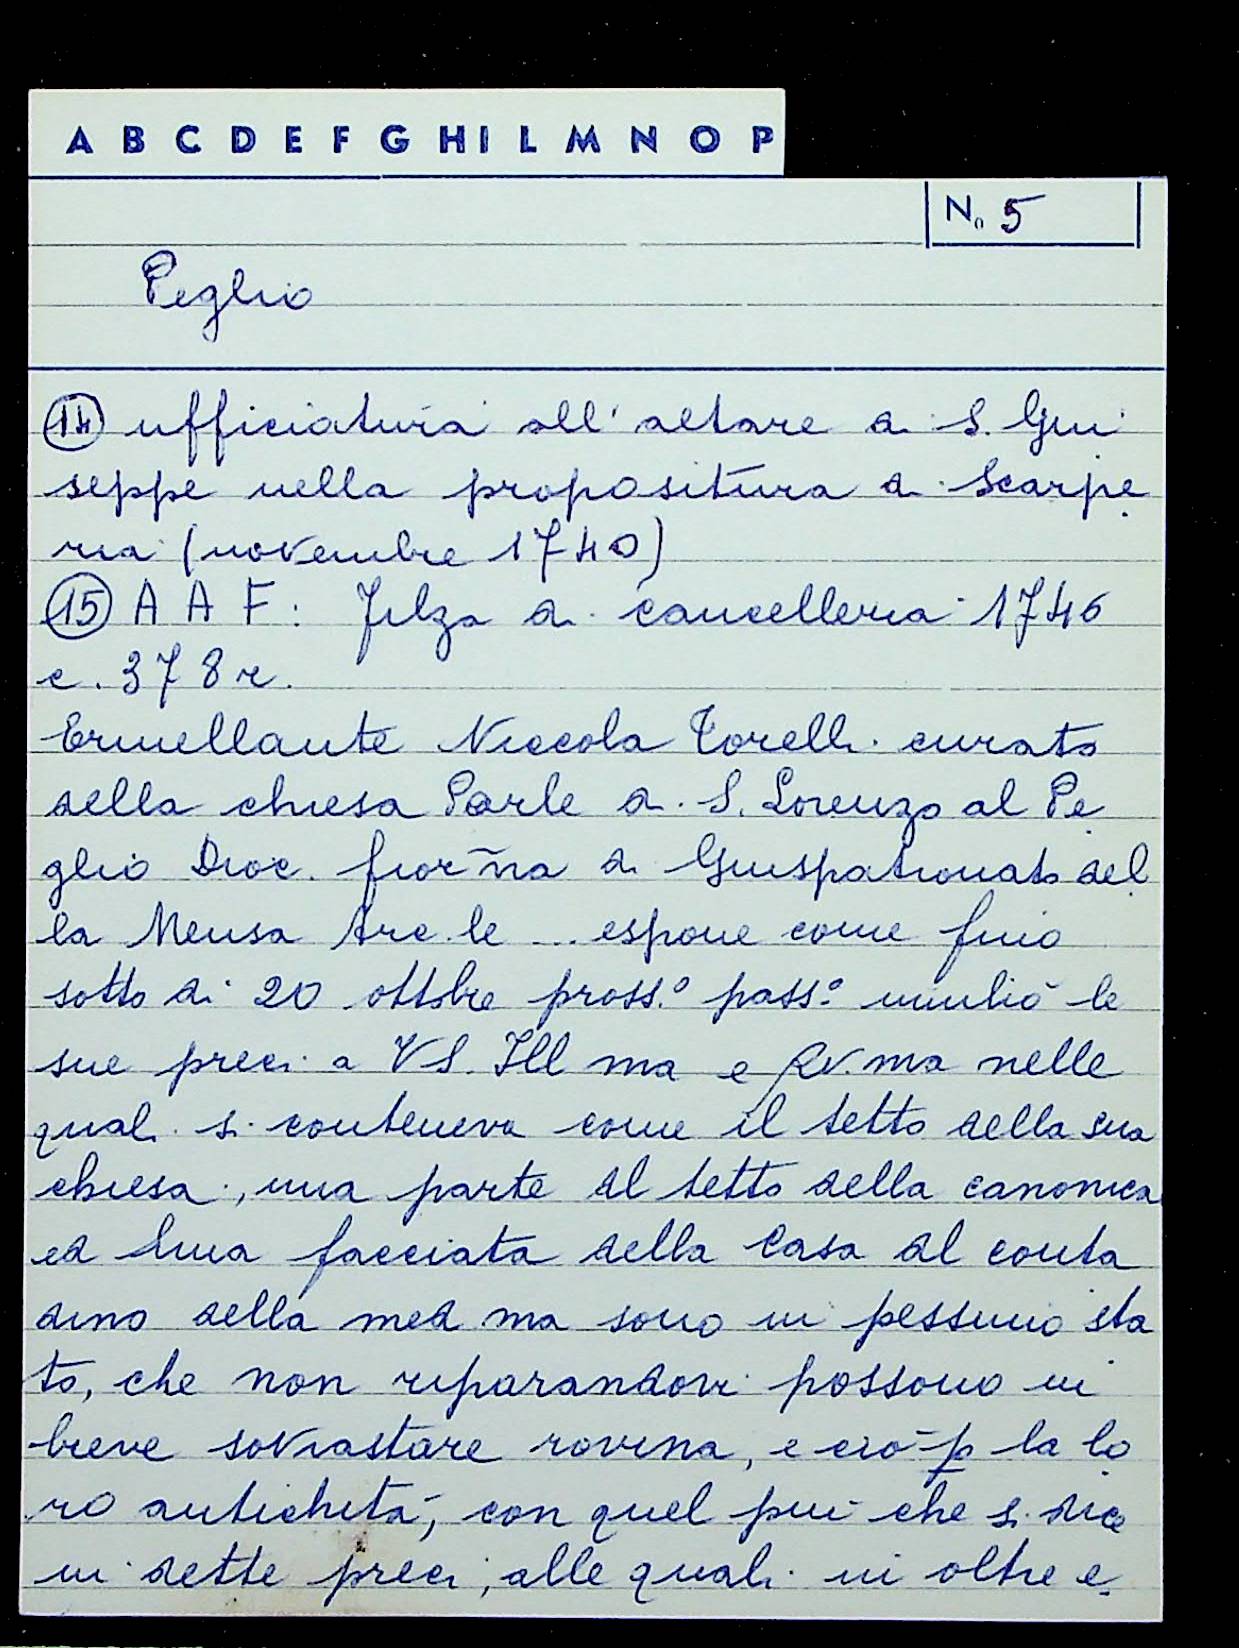 A B C D E F G H I L M N O P
N. 5
Peglio
(14) ufficiatura all'altare di S. Giu
seppe nella propositura di Scarpe
ria (novembre 1740)
(15) A A F: Filza di cancelleria 1746
c. 378r.
Ermellante Niccola Torelli curato
della chiesa Parle di S. Lorenzo al Pe
glio Dioc. fior̃na di Giuspatronato del
la Mensa Arc.le ... espone come fino
sotto di 20 ottobre pross.° pass.° umiliò le
sue preci a VS. Ill ma e Rv.ma nelle
quali si conteneva come il tetto della sua
chiesa, una parte del tetto della canonica
ed una facciata della casa del conta
dino della med ma sono in pessimo sta
to, che non riparandovi possono in
breve sovrastare rovina, e ciò p la lo
ro antichità, con quel più che si dice
in dette preci, alle quali in oltre e